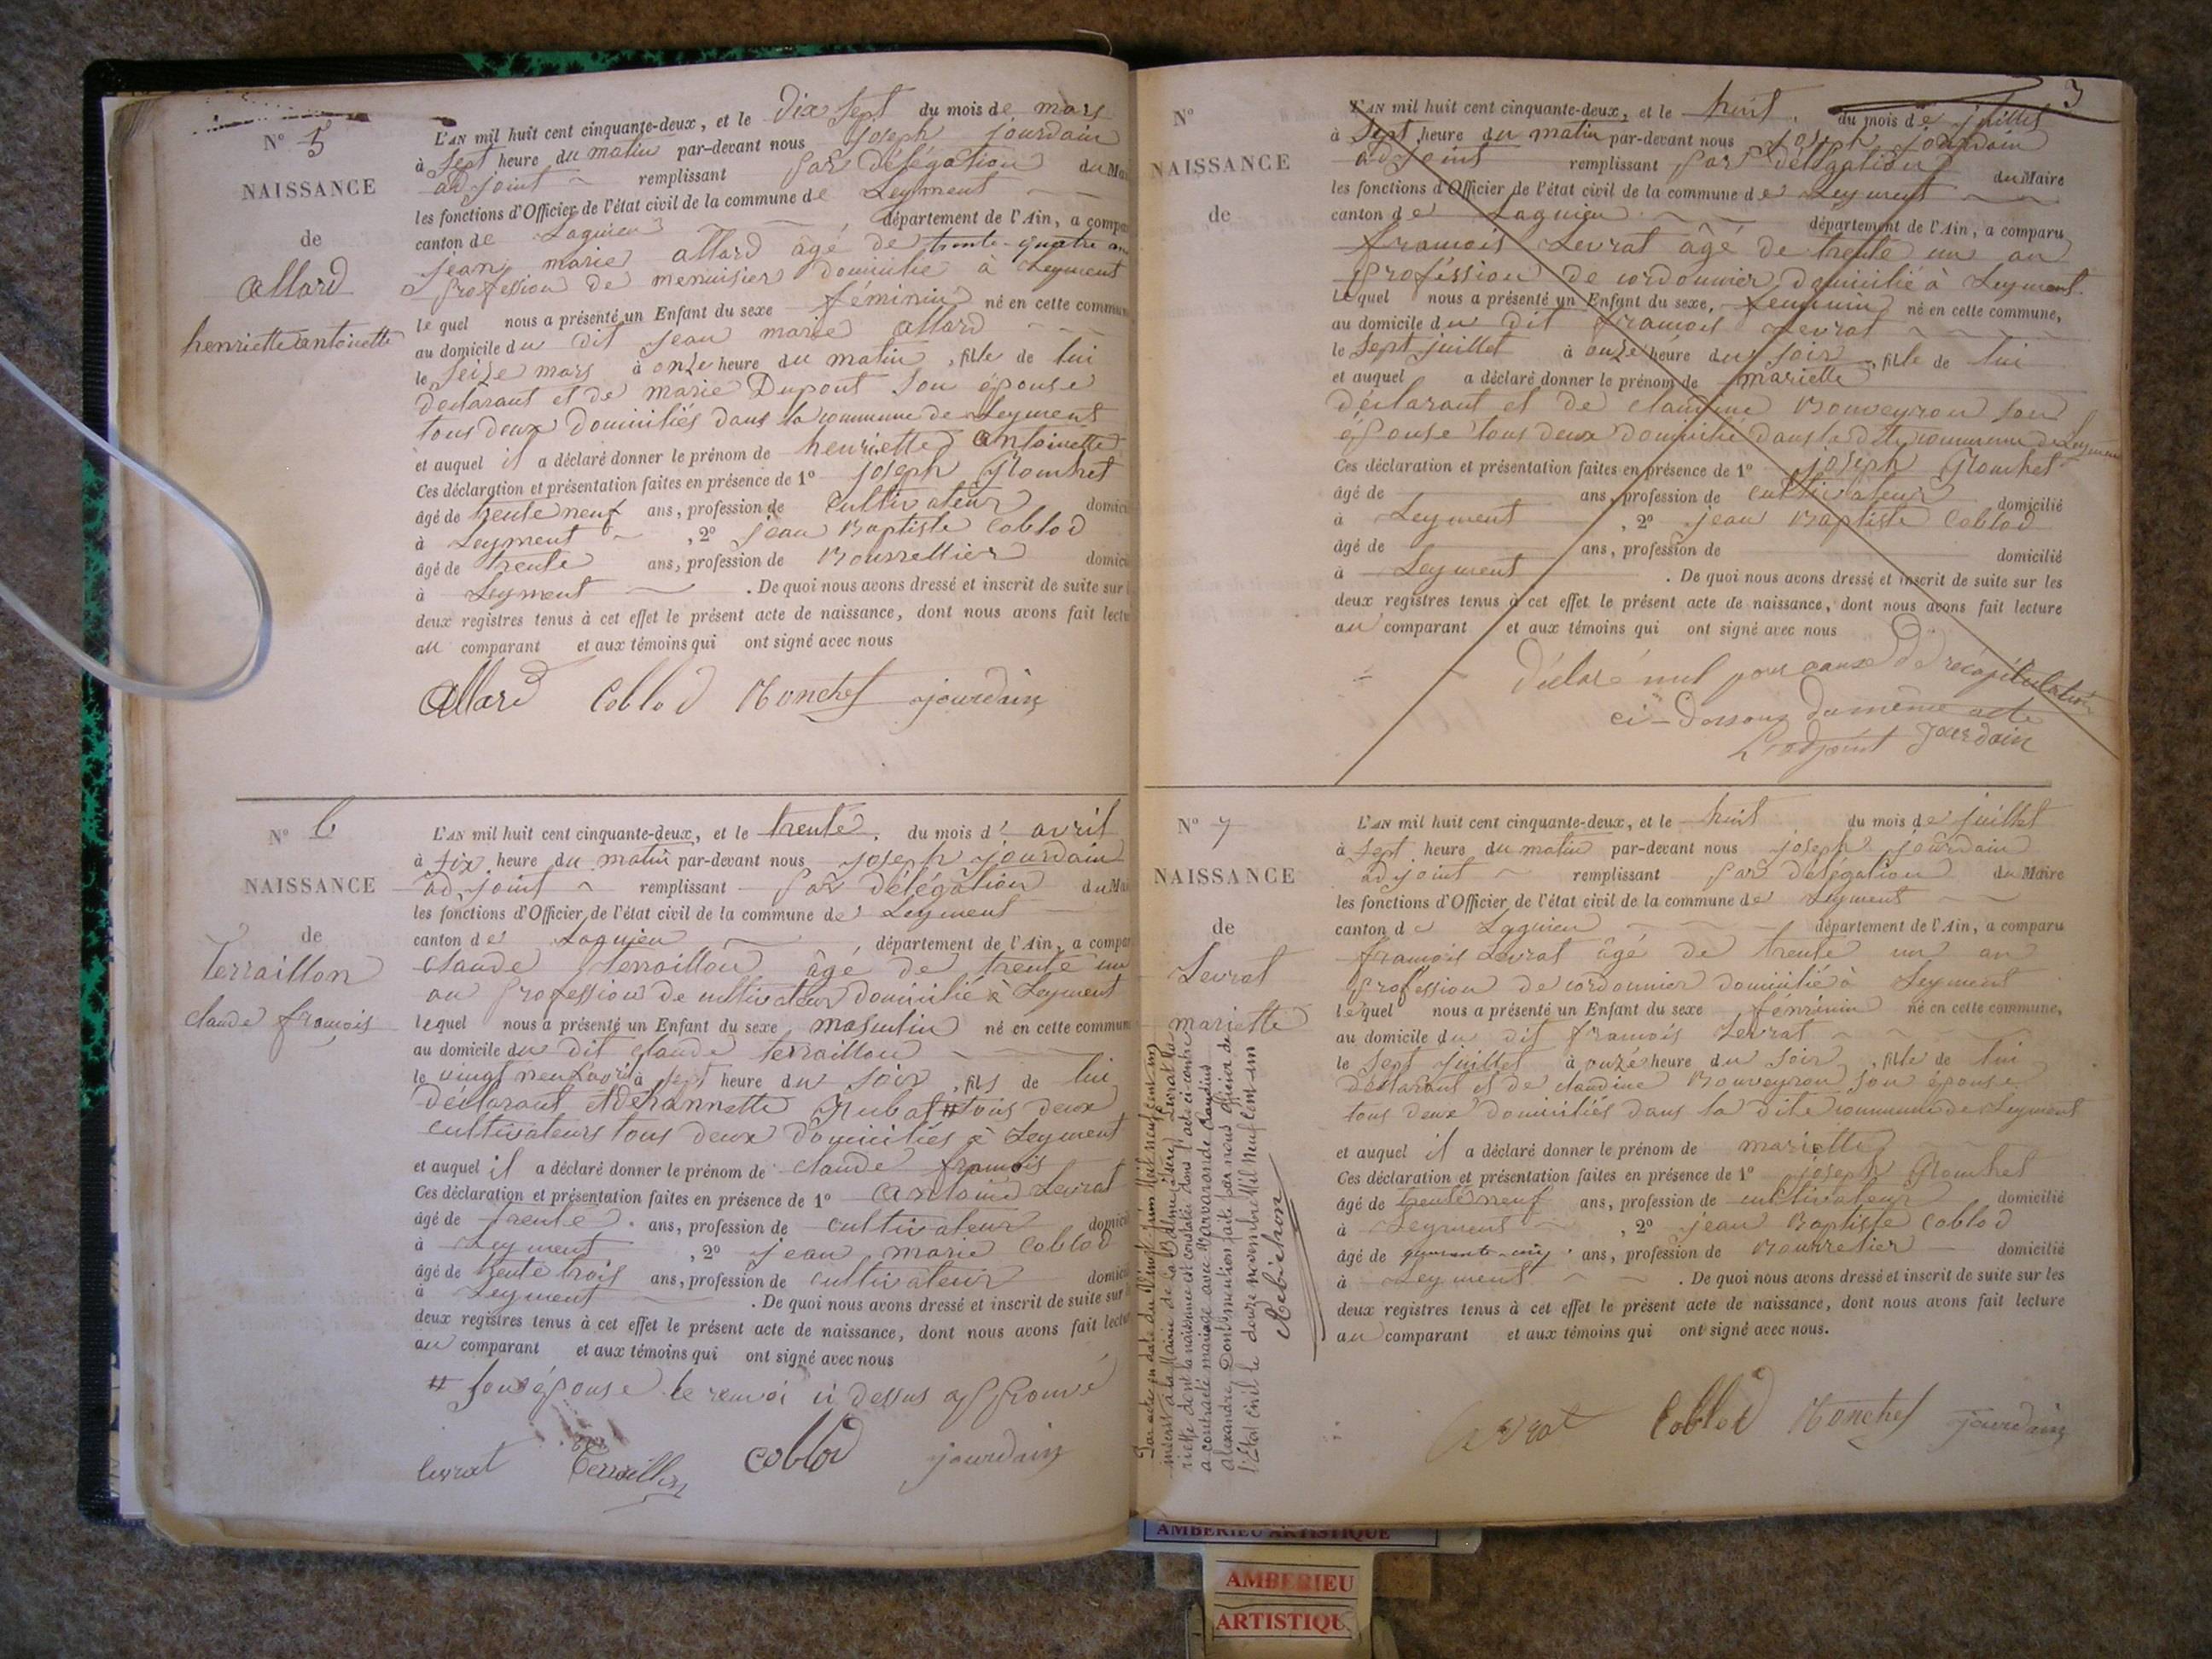 N° 5
NAISSANCE
de
allard
henriette antoinette
L'AN mil huit cent cinquante-deux, et le dix sept du mois de mars
à sept heure du matin par-devant nous joseph jourdain
adjoint remplissant par délégation du Mai
les fonctions d'Officier de l'état civil de la commune de Leyment
canton de Lagnieu département de l'Ain, a compa
jean marie allard âgé de trente-quatre an
profession de menuisier domicilié à Leyment
le quel nous a présenté un Enfant du sexe féminin né en cette commun
au domicile du dit jean marie allard
le seize mars à onze heure du matin, fille de lui
declarant et de marie Dupont son épouse
tous deux domiciliés dans la commune de Leyment
et auquel il a déclaré donner le prénom de henriette antoinette
Ces déclaration et présentation faites en présence de 1° joseph
âgé de trente neuf ans, profession de cultivateur domici
à Leyment, 2° jean Baptiste Coblod
âgé de trente ans, profession de Bourrellier domici
à Leyment. De quoi nous avons dressé et inscrit de suite sur l
deux registres tenus à cet effet le présent acte de naissance, dont nous avons fait lectu
au comparant et aux témoins qui ont signé avec nous
Allard Coblod jourdain
N° 6
NAISSANCE
de
Terraillon
claude françois
L'AN mil huit cent cinquante-deux, et le trente. du mois d'avril
à six heure du matin par-devant nous joseph jourdain
adjoint remplissant par délégation du Mai
les fonctions d'Officier de l'état civil de la commune de Leyment
canton de Lagnieu, département de l'Ain, a compar
claude terraillon âgé de trente un
an profession de cultivateur domicilié à Leyment
lequel nous a présenté un Enfant du sexe masculin né en cette commun
au domicile du dit claude terraillon
le vingt neuf avril à sept heure du soir, fils de lui
declarant et # tous deux
cultivateurs tous deux domiciliés à Leyment
et auquel il a déclaré donner le prénom de claude françois
Ces déclaration et présentation faites en présence de 1° antoine Levrat
âgé de trente. ans, profession de cultivateur domici
à Leyment, 2° jean marie Coblod
âgé de trente trois ans, profession de cultivateur domici
à Leyment. De quoi nous avons dressé et inscrit de suite sur l
deux registres tenus à cet effet le présent acte de naissance, dont nous avons fait lectu
au comparant et aux témoins qui ont signé avec nous
# son épouse le renvoi ci dessus approuvé
levrat Terraillon Coblod jourdain
3
N°
NAISSANCE
de
L'AN mil huit cent cinquante-deux, et le huit. du mois de juillet
à sept heure du matin par-devant nous joseph jourdain
adjoint remplissant par délégation du Maire
les fonctions d'Officier de l'état civil de la commune de Leyment
canton de Lagnieu département de l'Ain, a comparu
françois Levrat âgé de trente un an
profession de cordonnier domicilié à Leyment
lequel nous a présenté un Enfant du sexe, feminin né en cette commune,
au domicile du dit françois Levrat
le sept juillet à onze heure du soir, fille de lui
et auquel a déclaré donner le prénom de mariette
déclarant et de claudine Bouveyron son
épouse tous deux domicilié dans la dite commune de Leyment
Ces déclaration et présentation faites en présence de 1° joseph
âgé de ans, profession de cultivateur domicilié
à Leyment, 2° jean Baptiste Coblod
âgé de ans, profession de domicilié
à Leyment. De quoi nous avons dressé et inscrit de suite sur les
deux registres tenus à cet effet le présent acte de naissance, dont nous avons fait lecture
au comparant et aux témoins qui ont signé avec nous
Déclaré nul pour cause de récapitulation
ci-dessous du même acte
L'adjoint Jourdain
N° 7
NAISSANCE
de
Levrat
mariette
Par acte en date du Vingt juin Mil neuf cent un
inscrit à la Mairie de La Balme (Isère) Levrat Ma
riette dont la naissance est constatée dans l'acte ci-contre
a contracté mariage avec Varvarande Claudius
alexandre. Dont mention faite par nous officier de
l'État civil le douze novembre Mil Neuf Cent un
L'AN mil huit cent cinquante-deux, et le huit du mois de juillet
à sept heure du matin par-devant nous joseph jourdain
adjoint remplissant par délégation du Maire
les fonctions d'Officier de l'état civil de la commune de Leyment
canton de Lagnieu département de l'Ain, a comparu
françois Levrat âgé de trente un an
profession de cordonnier domicilié à Leyment
lequel nous a présenté un Enfant du sexe féminin né en cette commune,
au domicile du dit françois Levrat
le sept juillet à onze heure du soir, fille de lui
déclarant et de claudine Bouveyron son épouse
tous deux domiciliés dans la dite commune de Leyment
et auquel il a déclaré donner le prénom de mariette
Ces déclaration et présentation faites en présence de 1° joseph
âgé de trente neuf ans, profession de cultivateur domicilié
à Leyment, 2° jean Baptiste Coblod
âgé de ans, profession de Bourrelier domicilié
à Leyment. De quoi nous avons dressé et inscrit de suite sur les
deux registres tenus à cet effet le présent acte de naissance, dont nous avons fait lecture
au comparant et aux témoins qui ont signé avec nous.
Levrat Coblod jourdain
AMBERIEU ARTISTIQUE
AMBERIEU
ARTISTIQU